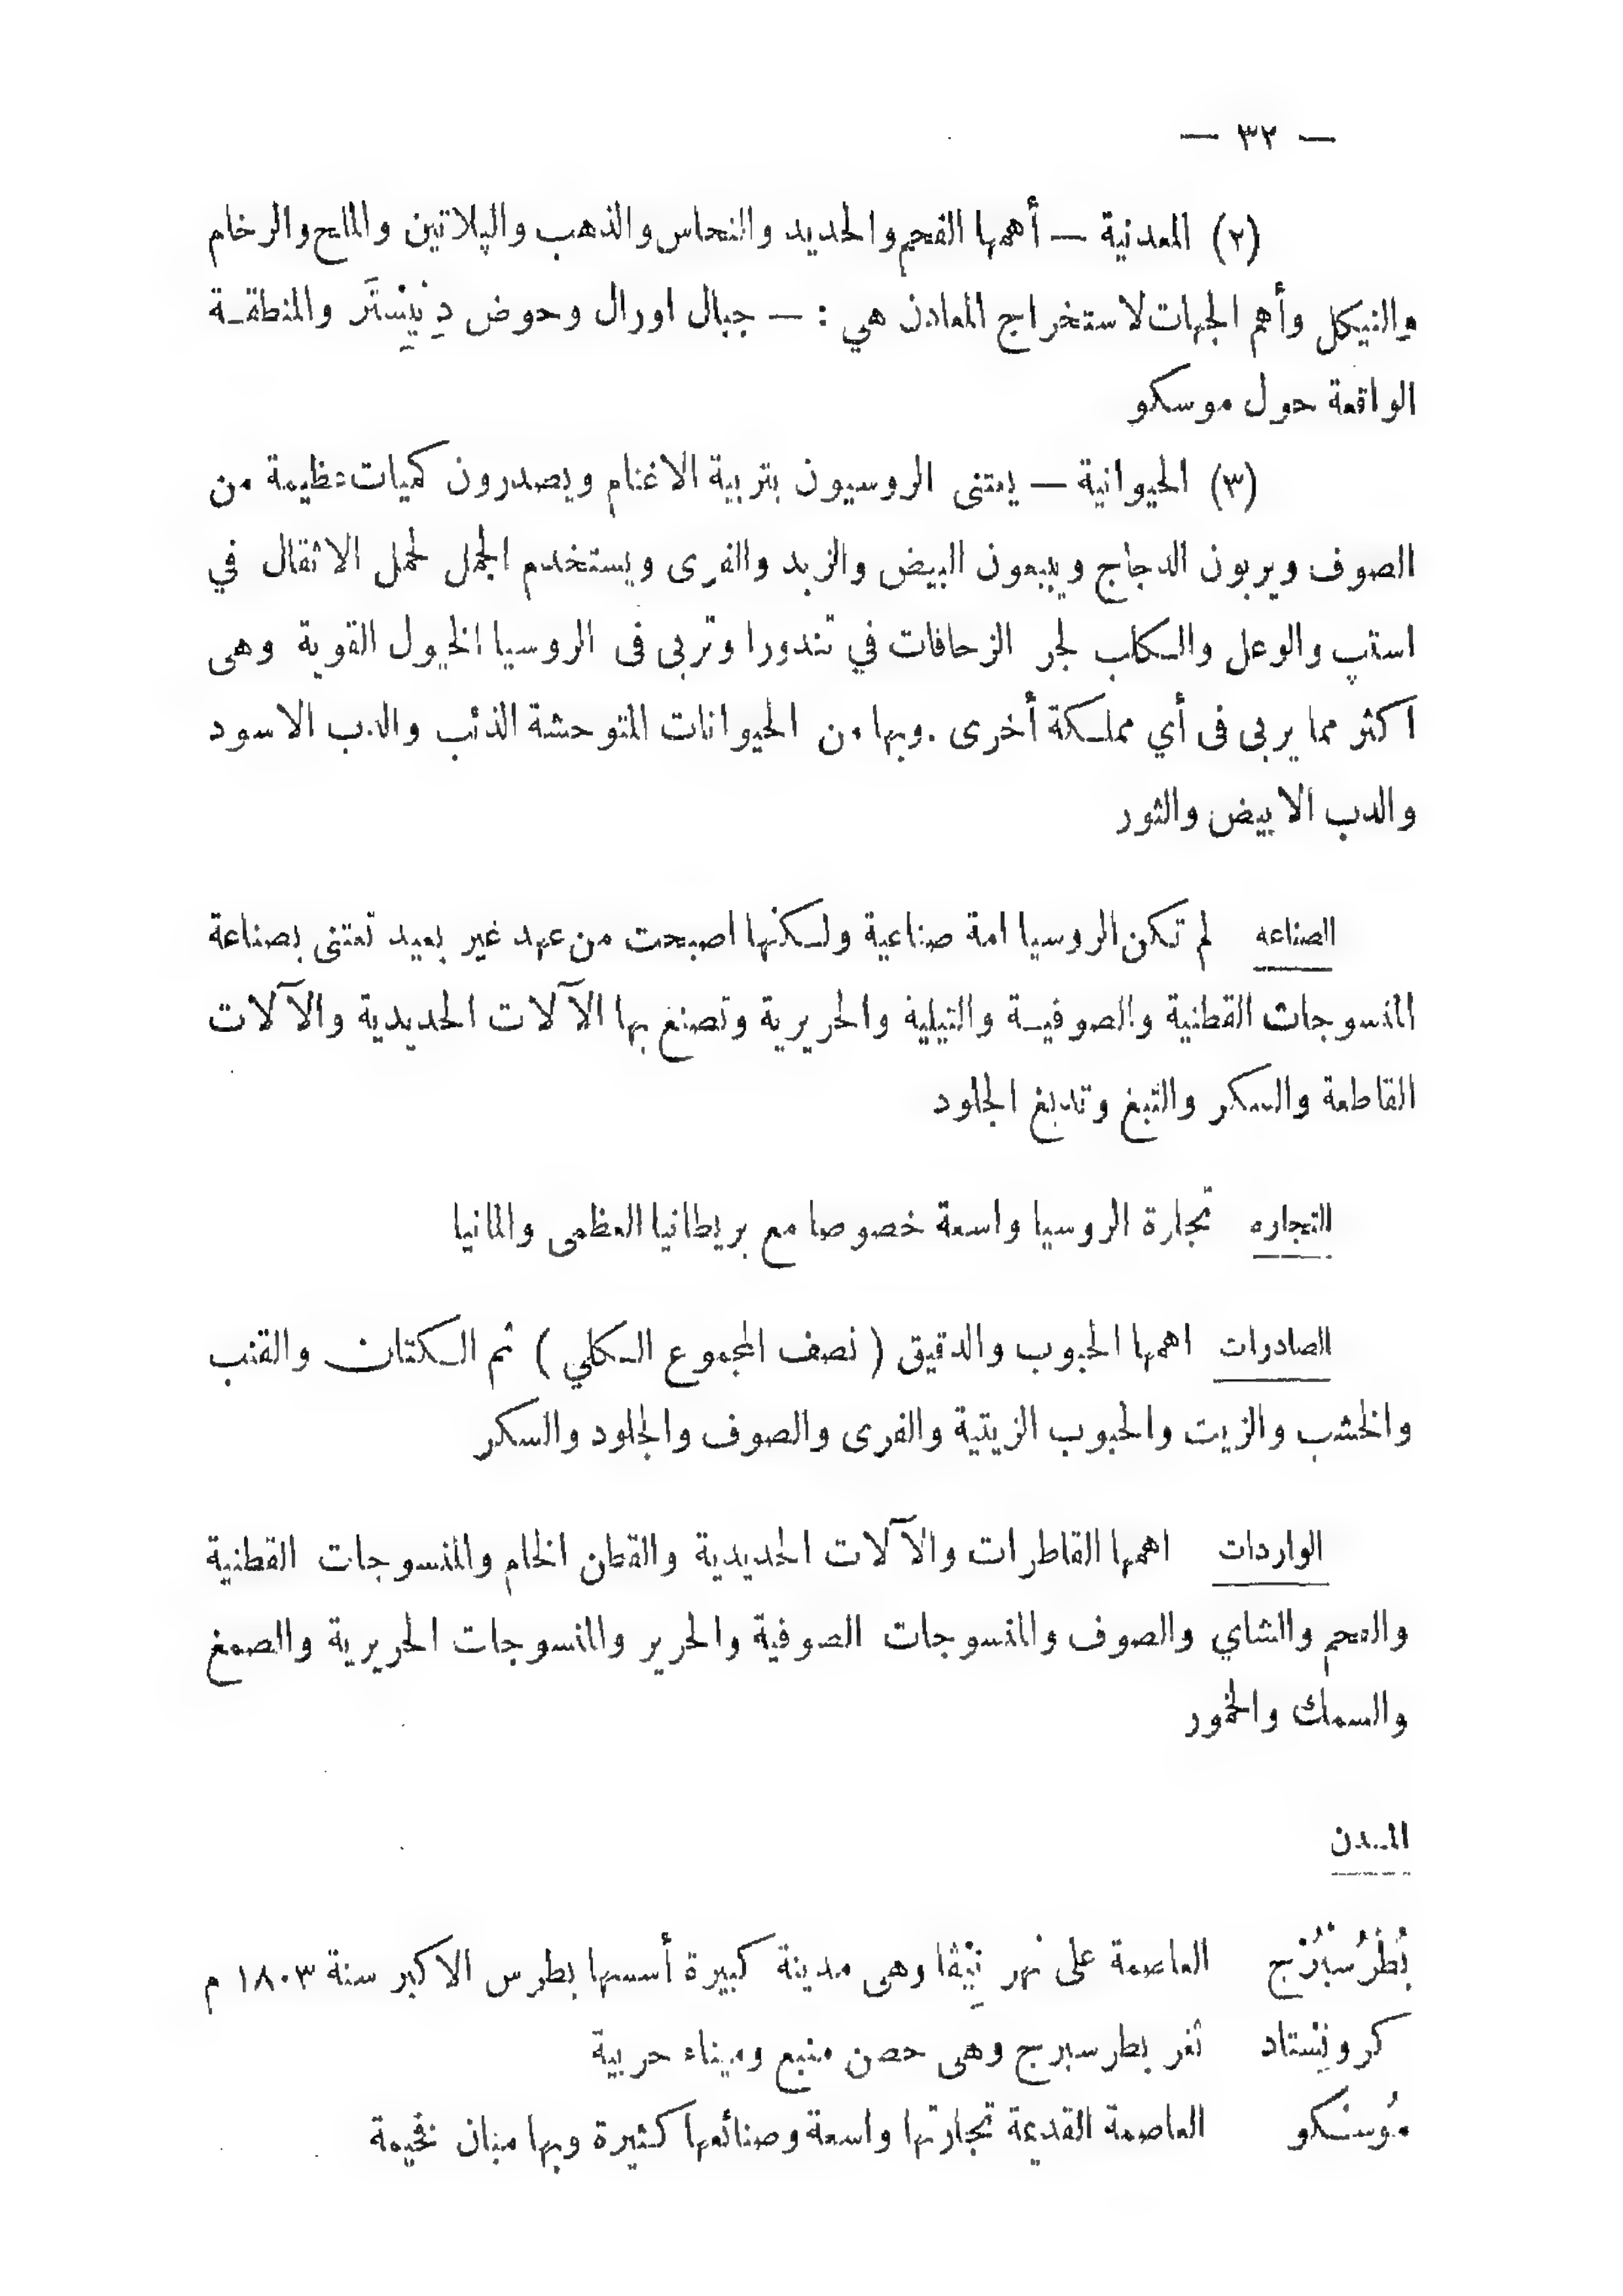 — ٣٢ —
(٢) المعدنية — أهمها الفحم والحديد والنحاس والذهب والپلاتين والملح والرخام
والنيكل وأهم الجهات لاستخراج المعادن هي : — جبال اورال وحوض دِنِيِسْتَر والمنطقـة
الواقعة حول موسكو
(٣) الحيوانية — يعتنى الروسيون بتربية الاغنام ويصدرون كميات عظيمة من
الصوف ويربون الدجاج ويبيعون البيض والزبد والفرى ويستخدم الجمل لحمل الاثقال في
استپ والوعل والـكلب لجر الزحافات في تندورا وتربى فى الروسيا الخيول القوية وهى
اكثر مما يربى فى أي مملـكة أخرى . وبها من الحيوانات المتوحشة الذئب والدب الاسود
والدب الابيض والثور
الصناعه لم تكن الروسيا امة صناعية ولـكنها اصبحت من عهد غير بعيد تعتنى بصناعة
المنسوجات القطنية والصوفيـة والتيلية والحريرية وتصنع بها الآلات الحديدية والآلات
القاطعة والسكر والتبغ وتدبغ الجلود
التجاره تجارة الروسيا واسعة خصوصا مع بريطانيا العظمى والمانيا
الصادرات اهمها الحبوب والدقيق ( نصف المجموع الـكلي ) ثم الـكتان والقنب
والخشب والزيت والحبوب الزيتية والفرى والصوف والجلود والسكر
الواردات اهمها القاطرات والآلات الحديدية والقطن الخام والمنسوجات القطنية
والفحم والشاي والصوف والمنسوجات الصوفية والحرير والمنسوجات الحريرية والصمغ
والسمك والخمور
المـدن
بُطْرُسْبُرْج العاصمة على نهر نِيْڤا وهى مدينة كبيرة أسسها بطرس الاكبر سنة ١٨٠٣ م
كرونِسْتاد ثغر بطرسبرج وهى حصن منيع وميناء حربية
مُوسْكو العاصمة القديمة تجارتها واسعة وصنائعها كثيرة وبها مبان فخيمة